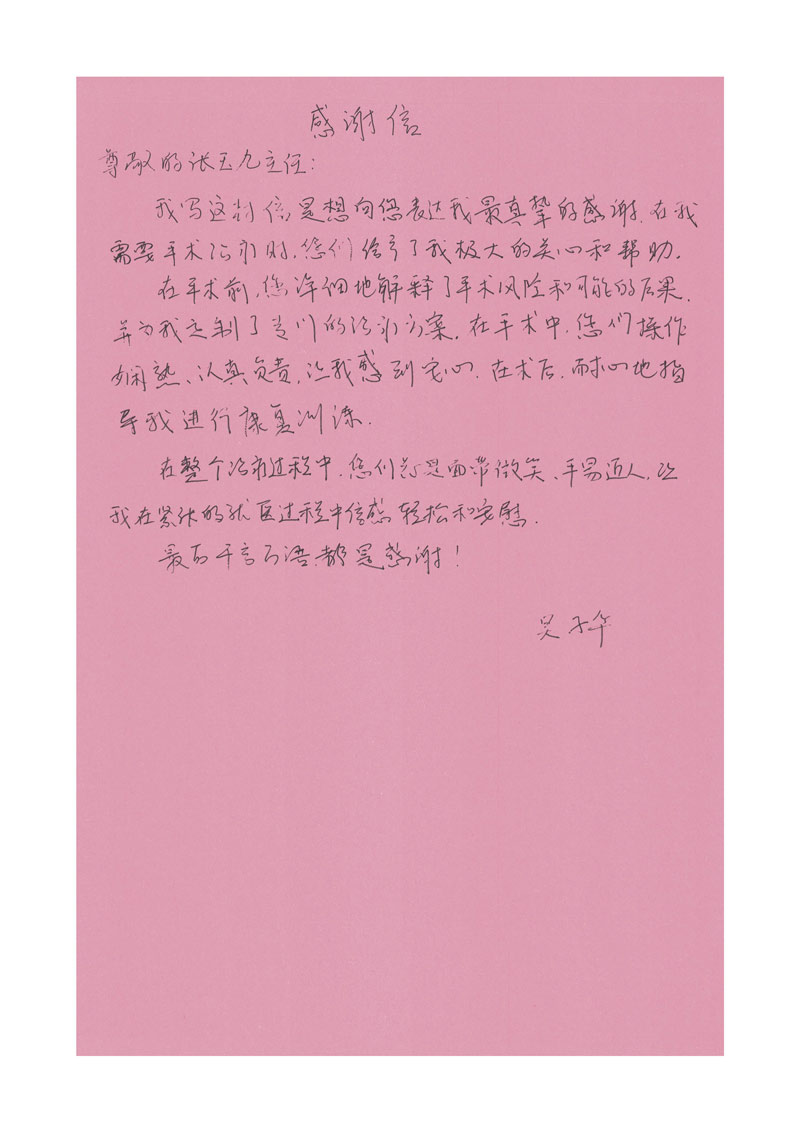 感谢信
尊敬的张玉九主任:
我写这封信,是想向您表达我最真挚的感谢.在我
需要手术治疗时,您们给予了我极大的关心和帮助.
在手术前,您详细地解释了手术风险和可能的后果,
并为我定制了专门的治疗方案.在手术中,您们操作
娴熟、认真负责,让我感到安心.在术后,耐心地指
导我进行康复训练.
在整个治疗过程中,您们总是面带微笑、平易近人,让
我在紧张的就医过程中倍感轻松和安慰.
最后千言万语,都是感谢!
吴